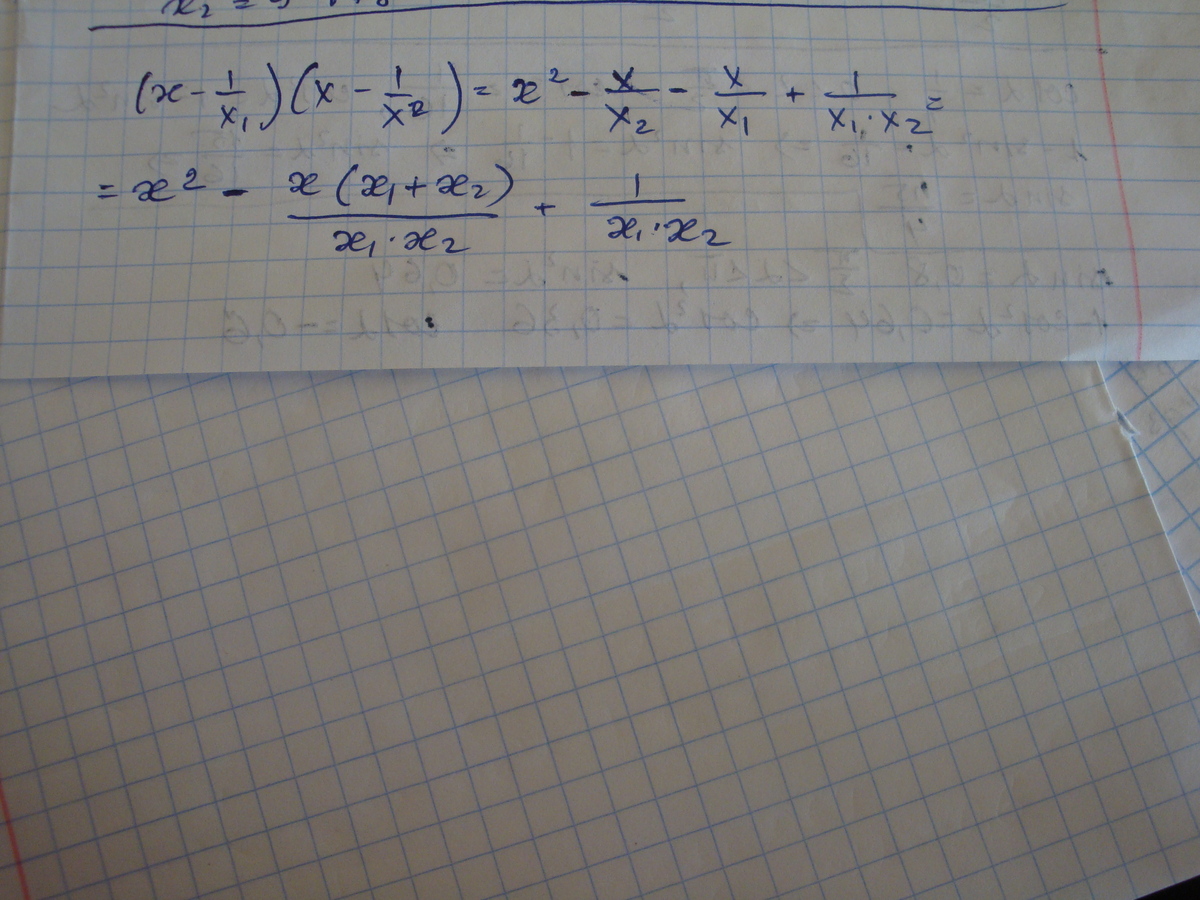 x₂ =
(x - 1/x₁)(x - 1/x²) = x² - x/x₂ - x/x₁ + 1/(x₁·x₂) =
= x² - x(x₁+x₂)/(x₁·x₂) + 1/(x₁·x₂)